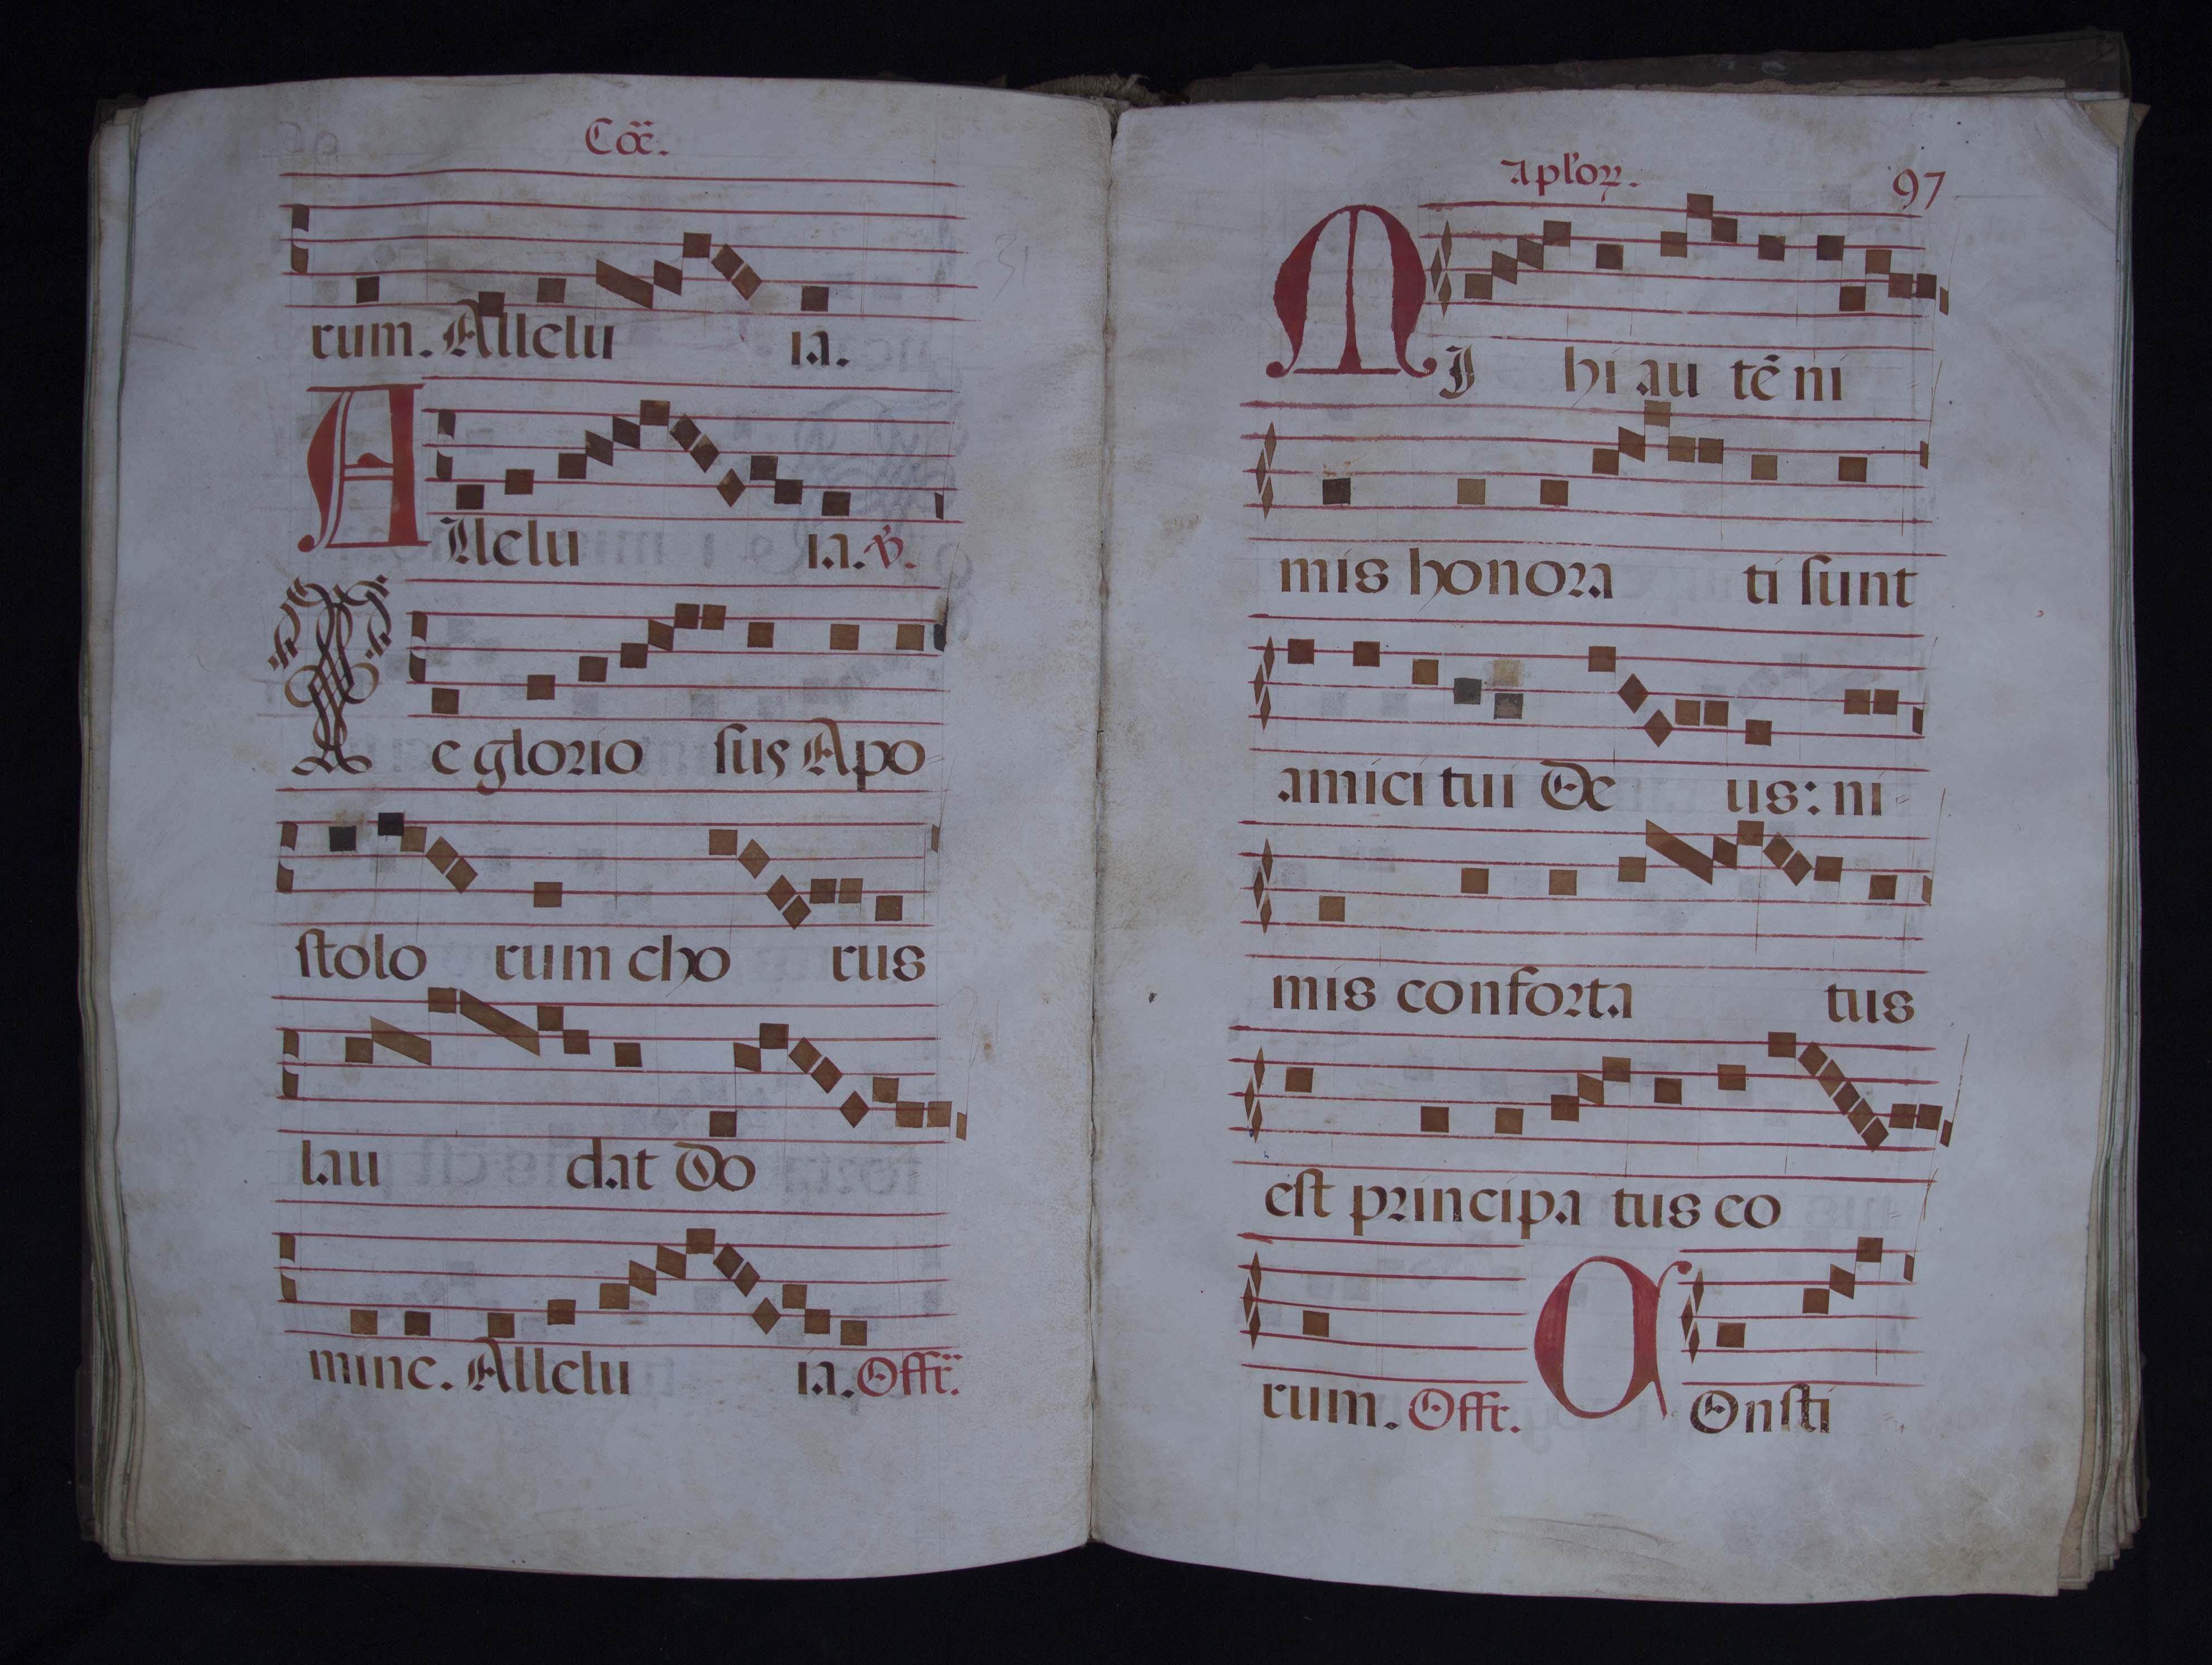 Cõe.
rum. Allelu ia.
Allelu ia. ℣.
Te glorio sus Apo-
stolo rum cho rus
lau dat Do
mine. Allelu ia. Offr̃.
Aploꝝ.
97
MJ hi au tẽ ni
mis honora ti sunt
amici tui De us: ni-
mis conforta tus
est principa tus eo
rum. Offr. COnsti